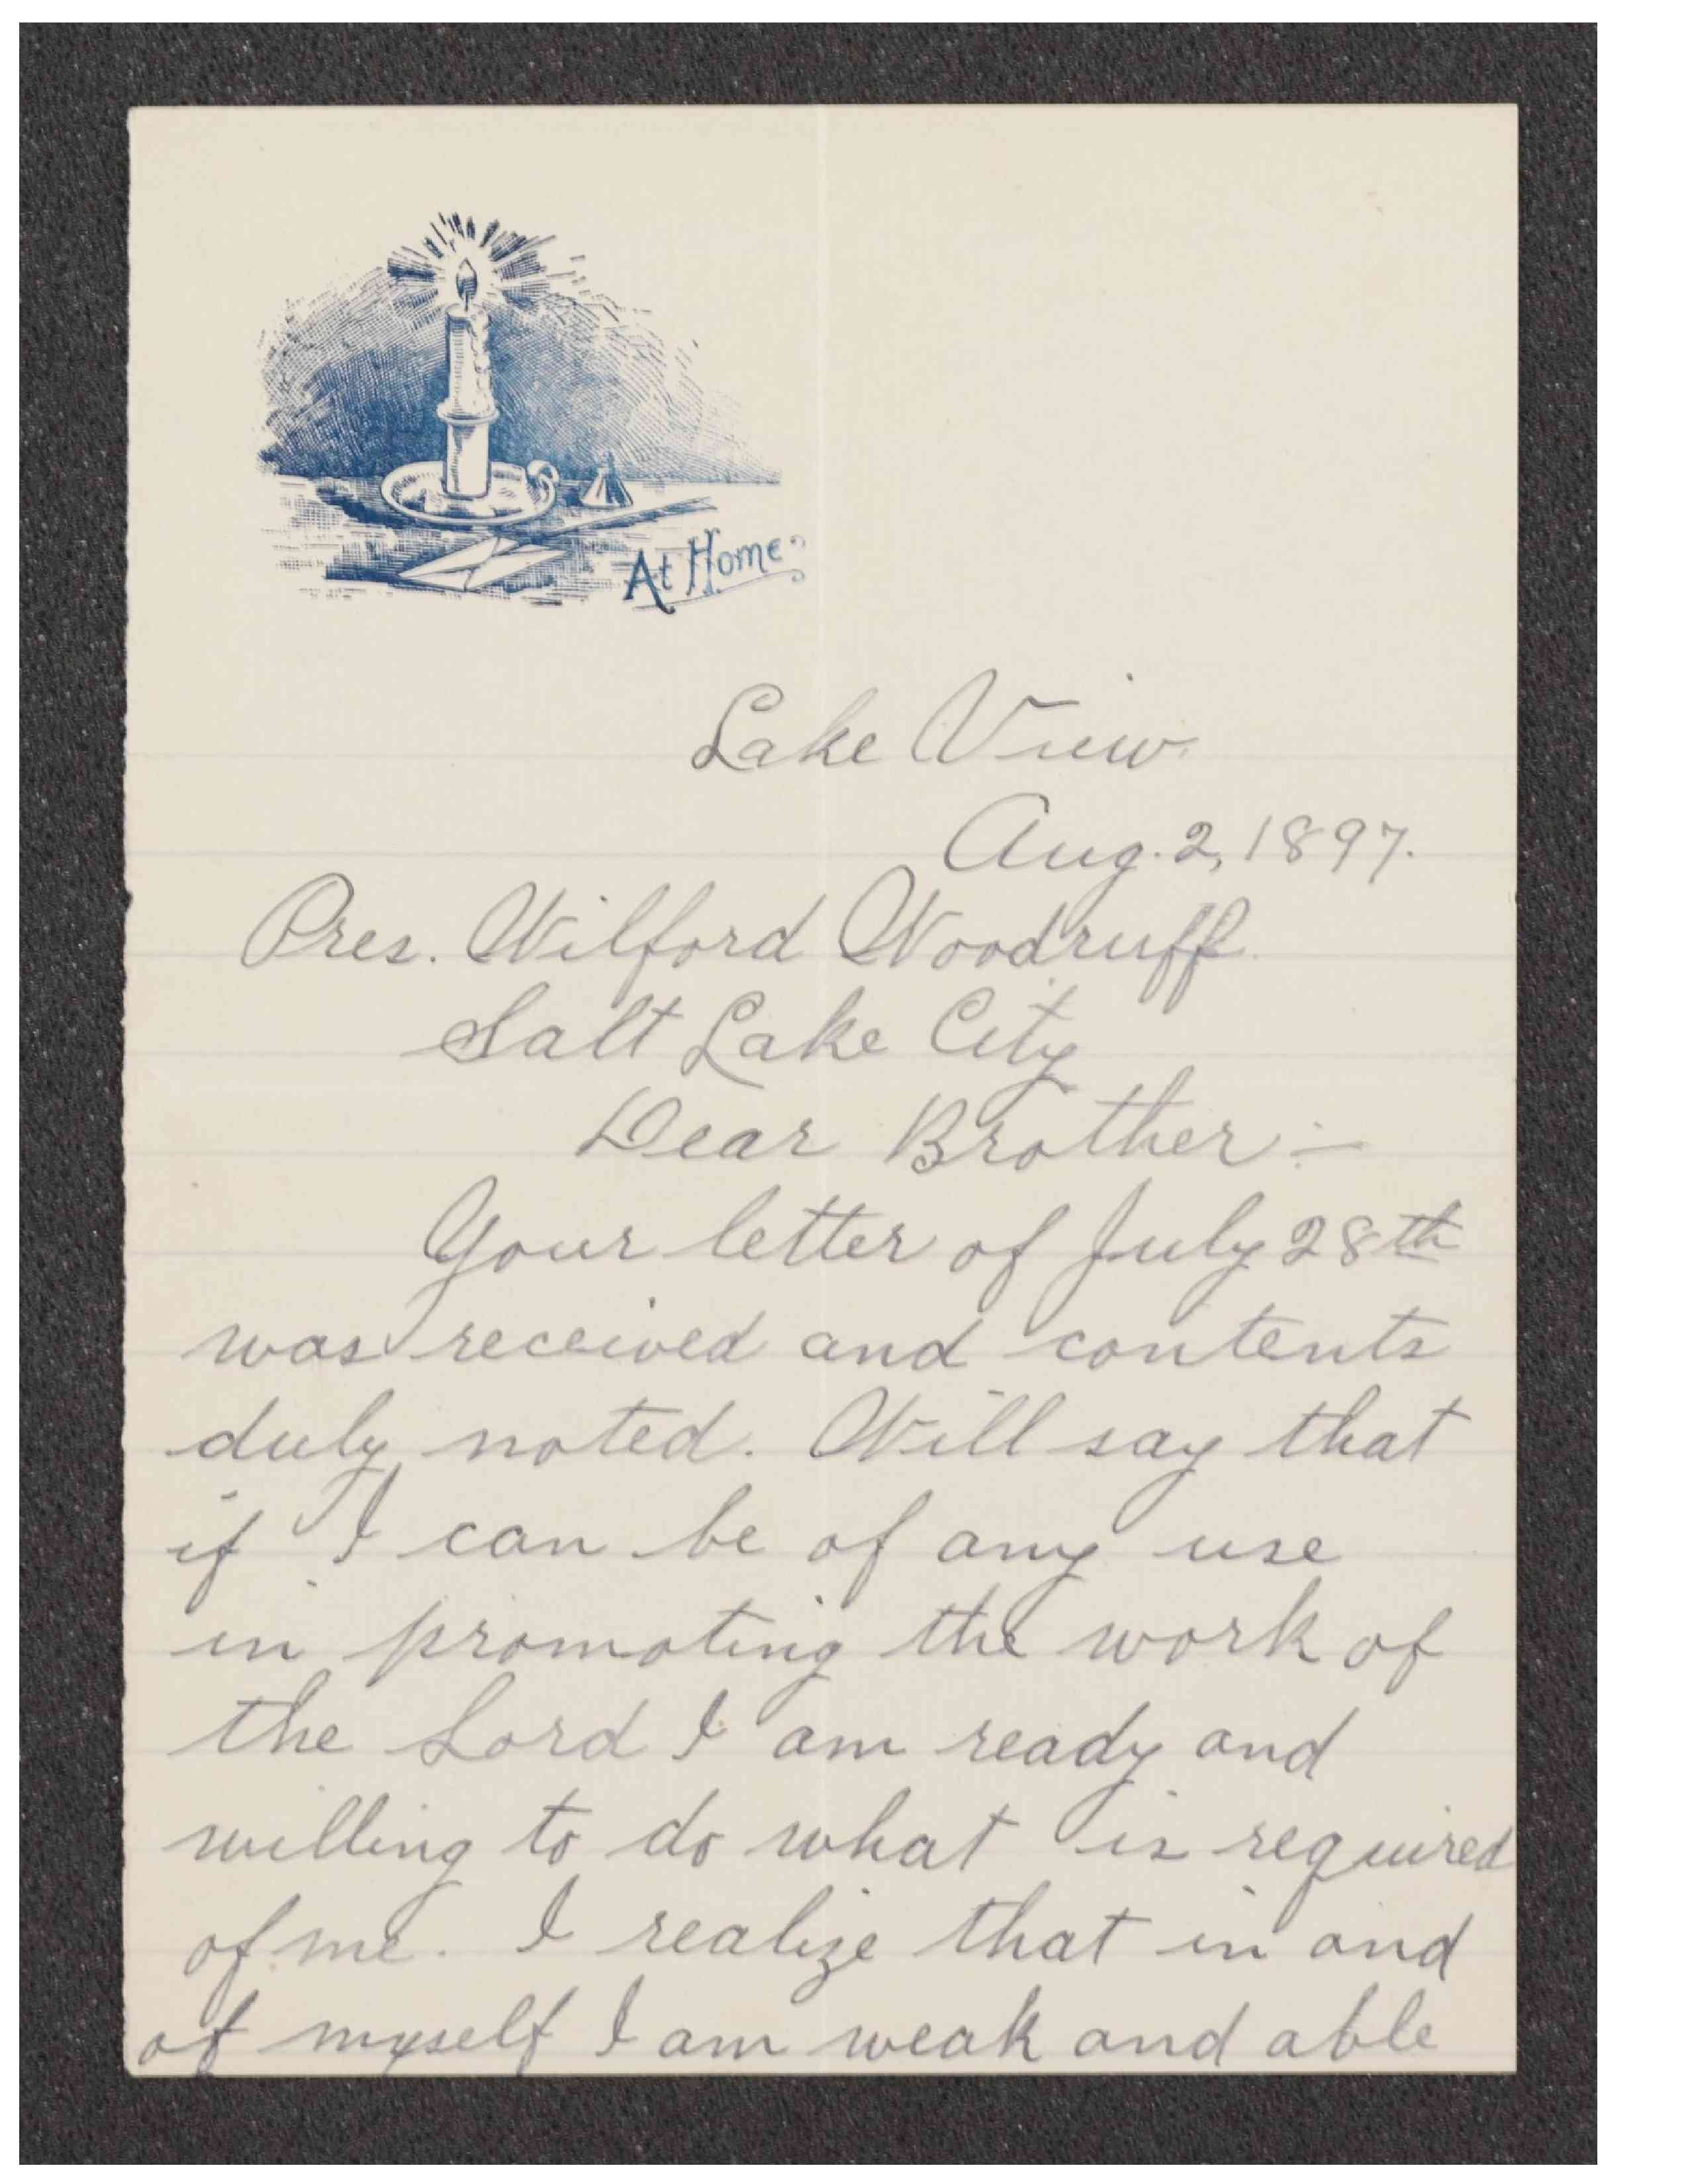 At Home
Lake View
Aug. 2, 1897.
Pres. Wilford Woodruff
Salt Lake City
Dear Brother:—
Your letter of July 28th
was received and contents
duly noted. Will say that
if I can be of any use
in promoting the work of
the Lord I am ready and
willing to do what is required
of me. I realize that in and
of myself I am weak and able